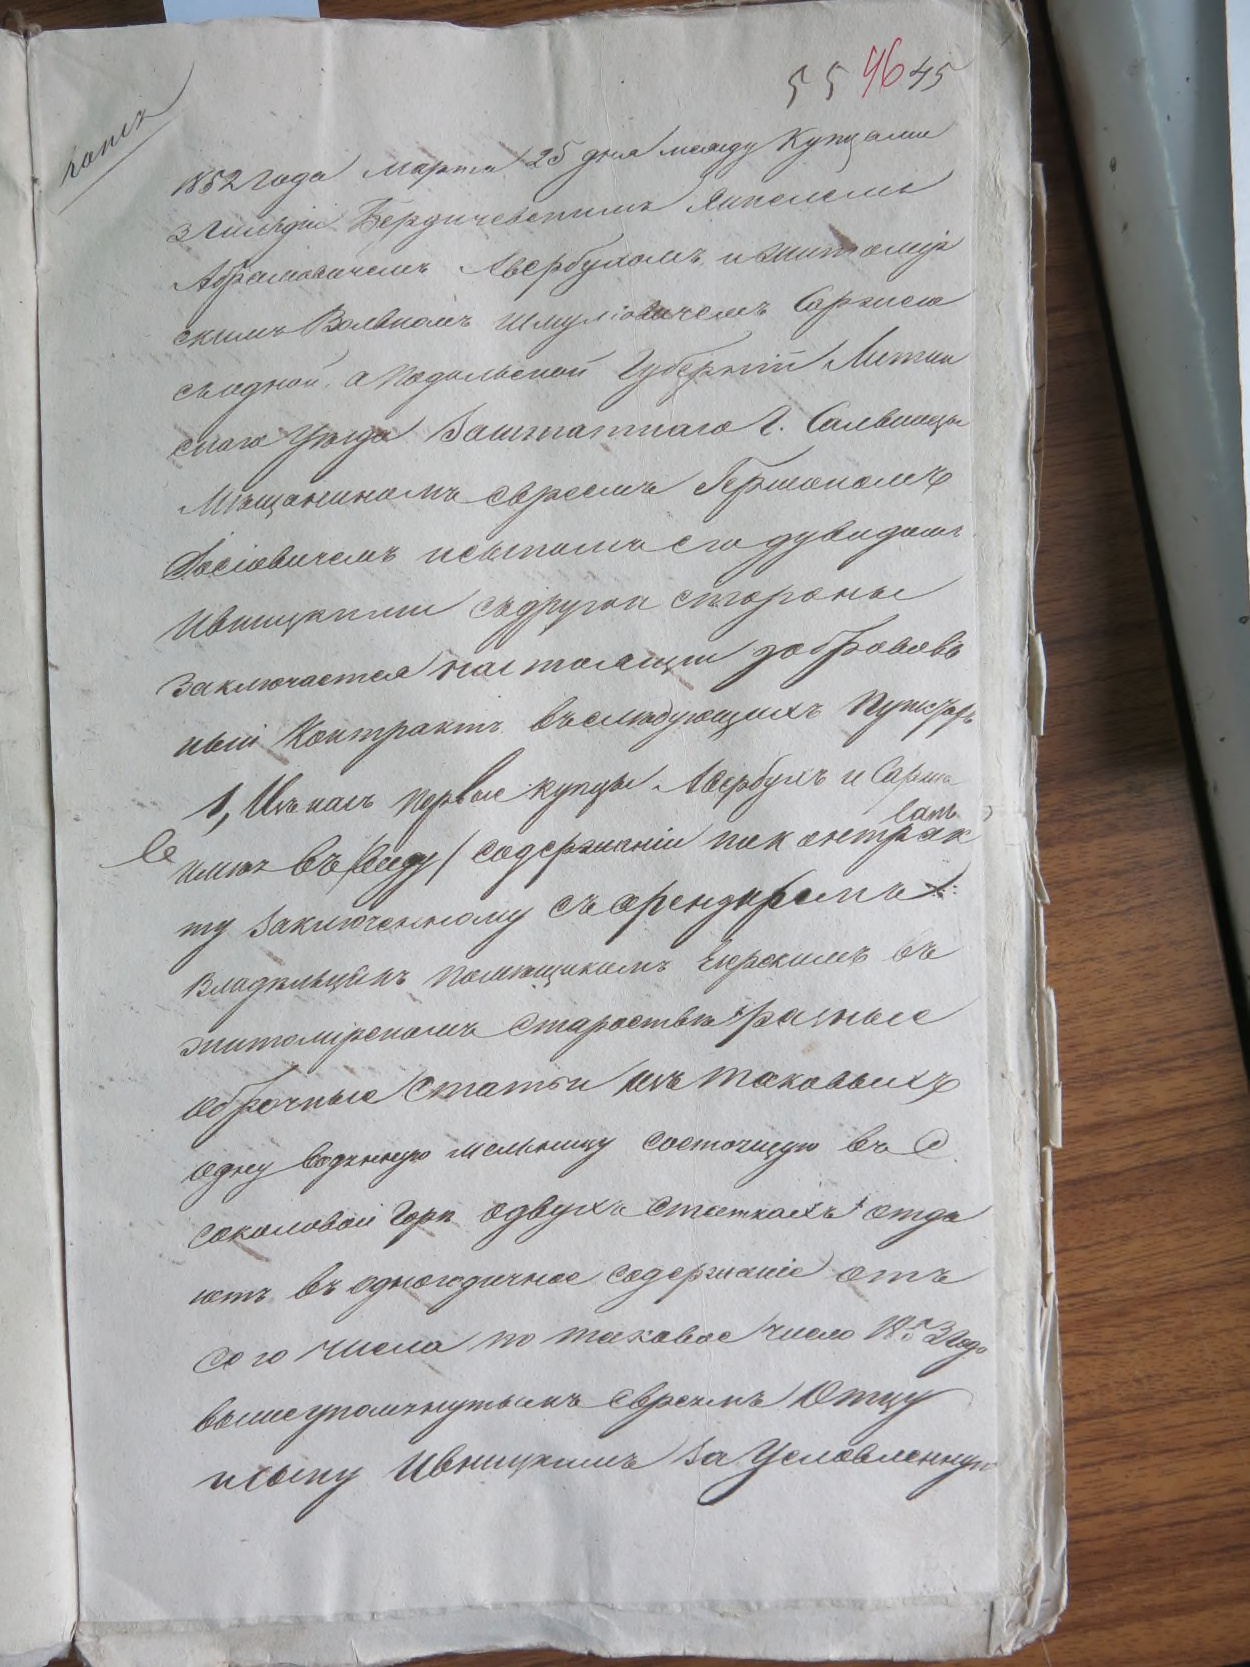 55 46 45
копія
1852 года марта 25 дня между Купцами
3 Гильдіи Бердичевскимъ
Абрамовичемъ Авербухомъ и Житомір
скимъ Волькомъ Шмуліовичемъ
съ одной, а Подольской Губерніи Летин
скаго Уѣзда Заштатнаго Г. Сальницы
Мѣщаниномъ евреемъ Гершкомъ
Іосіовичемъ и сыномъ его Дувидомъ
Ивницкими съ другой стороны
Заключается настоящій добровол
ный Контрактъ въ слѣдующихъ Пунктахъ
1, Изъ насъ первые купцы Авербухъ и
имѣя въ содержаніи по контрак
ту заключенному съ
Владѣльцемъ помѣщикомъ въ
Житомірскомъ Староствѣ разные
оброчные статьи изъ таковыхъ
одну водяную мельницу состоящую въ С.
Соколовой Горѣ о двухъ отда
ютъ въ одногодичное содержаніе отъ
сего числа по таковое число 1853 года
вышеупомянутымъ евреямъ Отцу
и сыну Ивницкимъ за Условленную